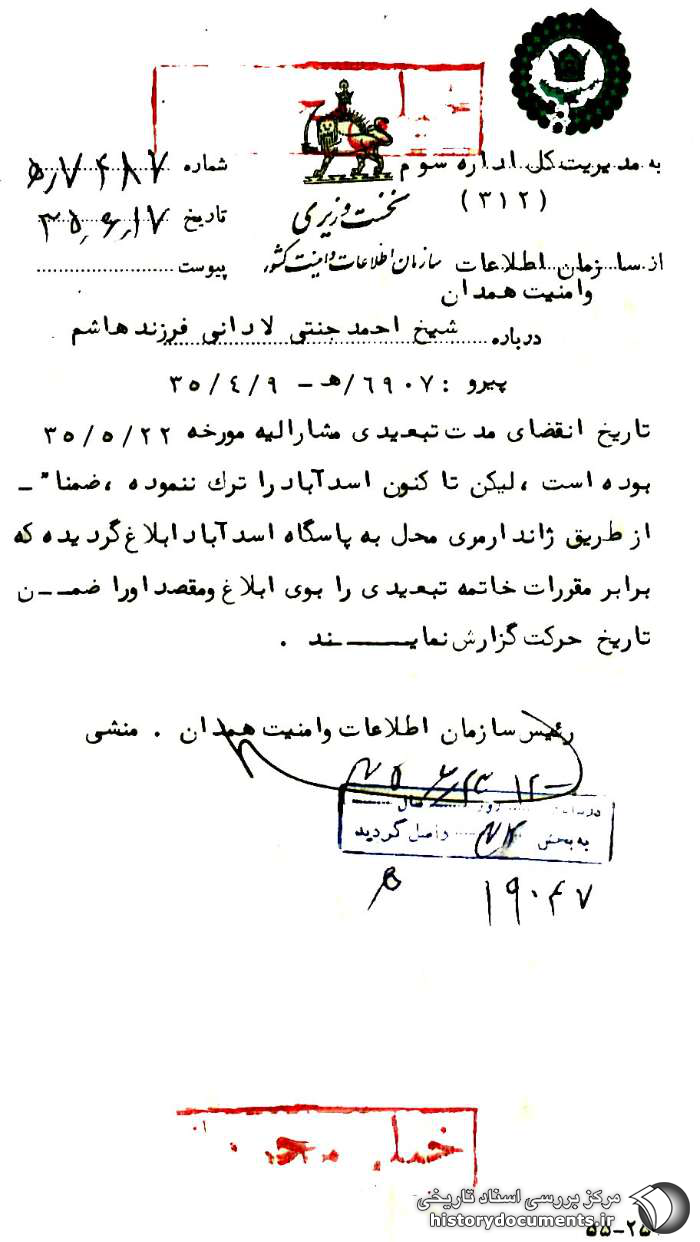 به مدیریت کل اداره سوم
(۳۱۲)
نخست وزیری
سازمان اطلاعات و امنیت کشور
شماره ۷۴۸۷/ه
تاریخ ۳۵٫۶٫۱۷
پیوست
از سازمان اطلاعات
وامنیت همدان
درباره شیخ احمد جنتی لادانی فرزند هاشم
پیرو : ۶۹۰۷/هـ - ۳۵/۴/۹
تاریخ انقضای مدت تبعیدی مشارالیه مورخه ۳۵/۵/۲۲
بوده است ، لیکن تا کنون اسدآباد را ترک ننموده ، ضمنا" -
از طریق ژاندارمری محل به پاسگاه اسدآباد ابلاغ گردیده که
برابر مقررات خاتمه تبعیدی را بوی ابلاغ ومقصد اورا ضمــن
تاریخ حرکت گزارش نمایـــند .
رئیس سازمان اطلاعات وامنیت همدان . منشی
روز سال
به بخش واصل گردید
۱۹۰۴۷
خیلی
مرکز بررسی اسناد تاریخی
historydocuments.ir
۵۵-۲۵